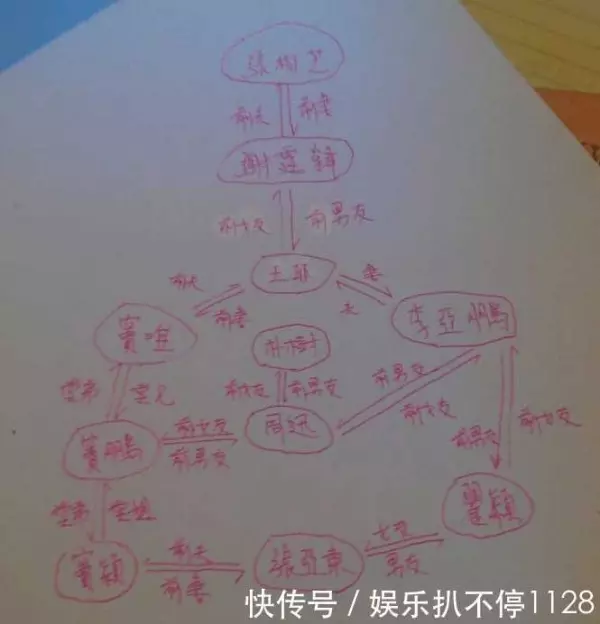 張柏芝
前夫 前妻
謝霆鋒
前女友 前男友
王菲
前夫 前妻
妻 夫
竇唯
李亚鹏
朴树
前女友 前男友
前男友 前女友
堂弟 堂兄
竇鹏
前女友
前男友
周迅
前男友 前女友
瞿颖
堂弟 堂姐
竇颖
前夫
前妻
張亚東
女友
男友
快传号/娱乐扒不停1128